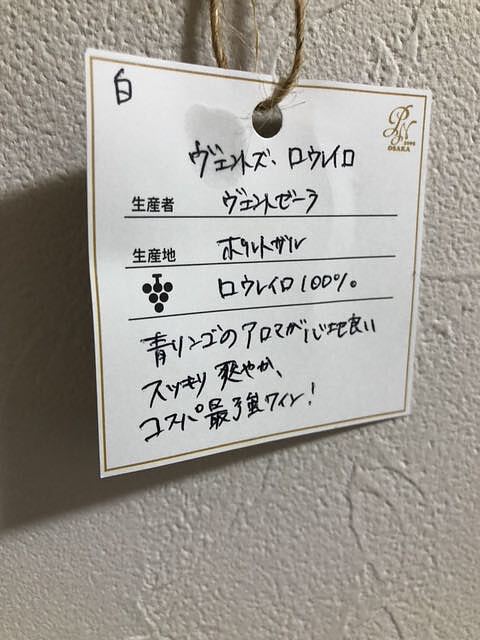 白
PN
2002
OSAKA
ヴェントズ、ロウレイロ
生産者 ヴェントゼーラ
生産地 ポルトガル
ロウレイロ100%。
青リンゴのアロマが心地良い
スッキリ爽やか、
コスパ最強ワイン!